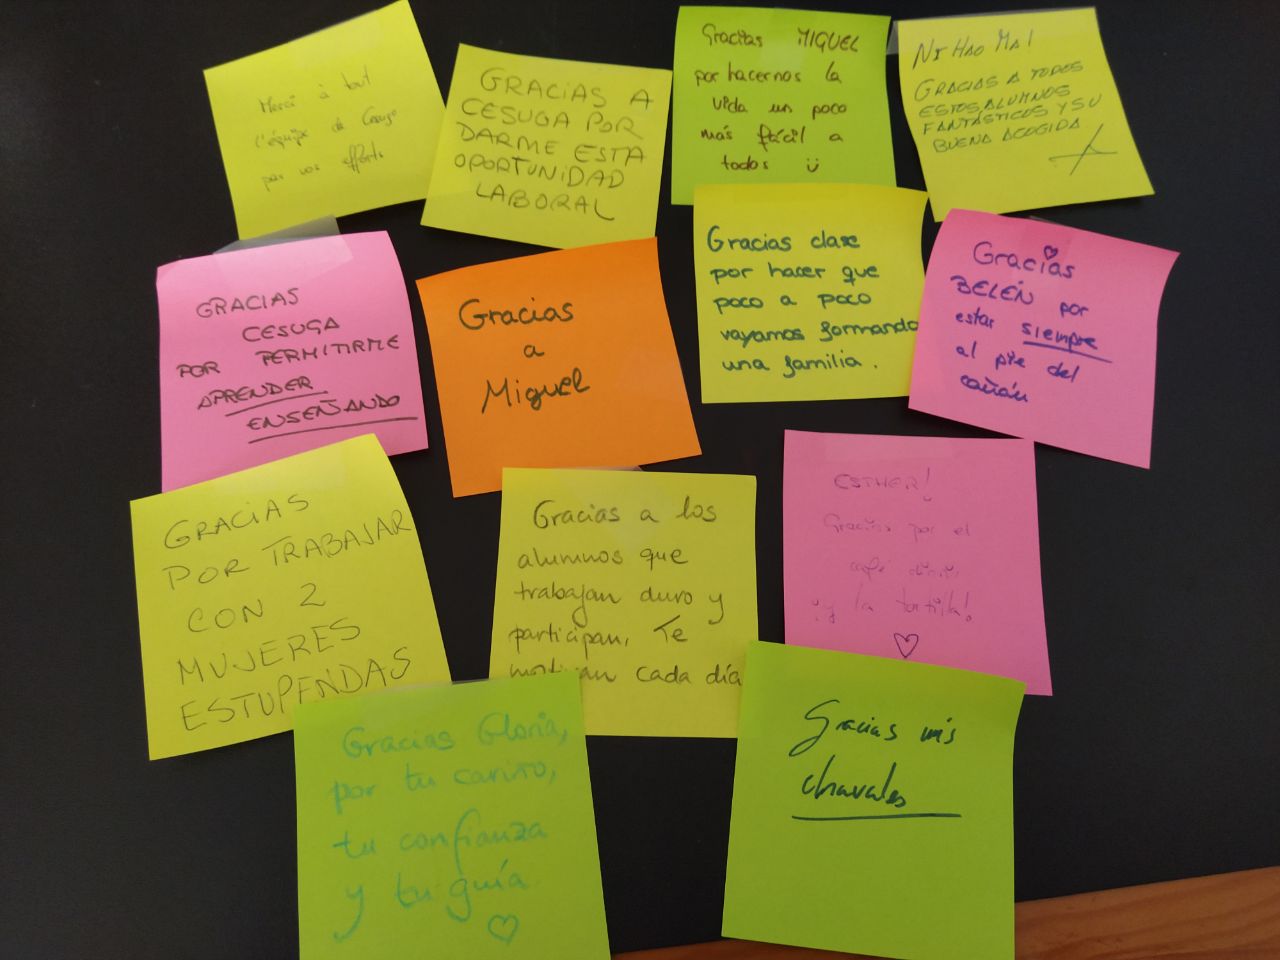 Merci à tout
l'équipe de Cesuga
par vos efforts
GRACIAS A
CESUGA POR
DARME ESTA
OPORTUNIDAD
LABORAL
Gracias MIGUEL
por hacernos la
vida un poco
más fácil a
todos
NI HAO MA!
GRACIAS A TODOS
ESTOS ALUMNOS
FANTÁSTICOS Y SU
BUENA ACOGIDA
GRACIAS
CESUGA
POR PERMITIRME
APRENDER
ENSEÑANDO
Gracias
a
Miguel
Gracias clase
por hacer que
poco a poco
vayamos formando
una familia.
Gracias
BELÉN por
estar siempre
al pie del
cañón
GRACIAS
POR TRABAJAR
CON 2
MUJERES
ESTUPENDAS
Gracias a los
alumnos que
trabajan duro y
participan. Te
motivan cada día
ESTHER!
Gracias por el
café
¡y la tortilla!
Gracias Gloria,
por tu cariño,
tu confianza
y tu guía
Gracias mis
chavales